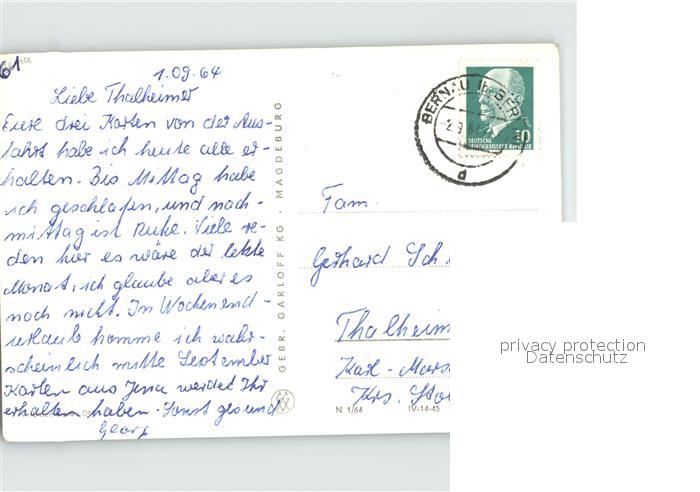 61
1.09.64
Liebe Thalheimer
Eure drei Karten von der Aus-
fahrt habe ich heute alle er-
halten. Bis Mittag habe
ich geschlafen, und nach-
mittag ist Ruhe. Viele re-
den hier es wäre der letzte
Monat, ich glaube aber es
noch nicht. In Wochenend-
urlaub komme ich wahr-
scheinlich mitte September
Karten aus Jena werdet Ihr
erhalten haben. Sonst gesund
Georg
GEBR. GARLOFF KG · MAGDEBURG
BERNAU
d
10
DEUTSCHE
DEMOKRATISCHE REPUBLIK
Fam.
Gerhard Sch.
Thalheim
Karl-Marx
Krs.
N 1/64 IV-14-45
privacy protection
Datenschutz